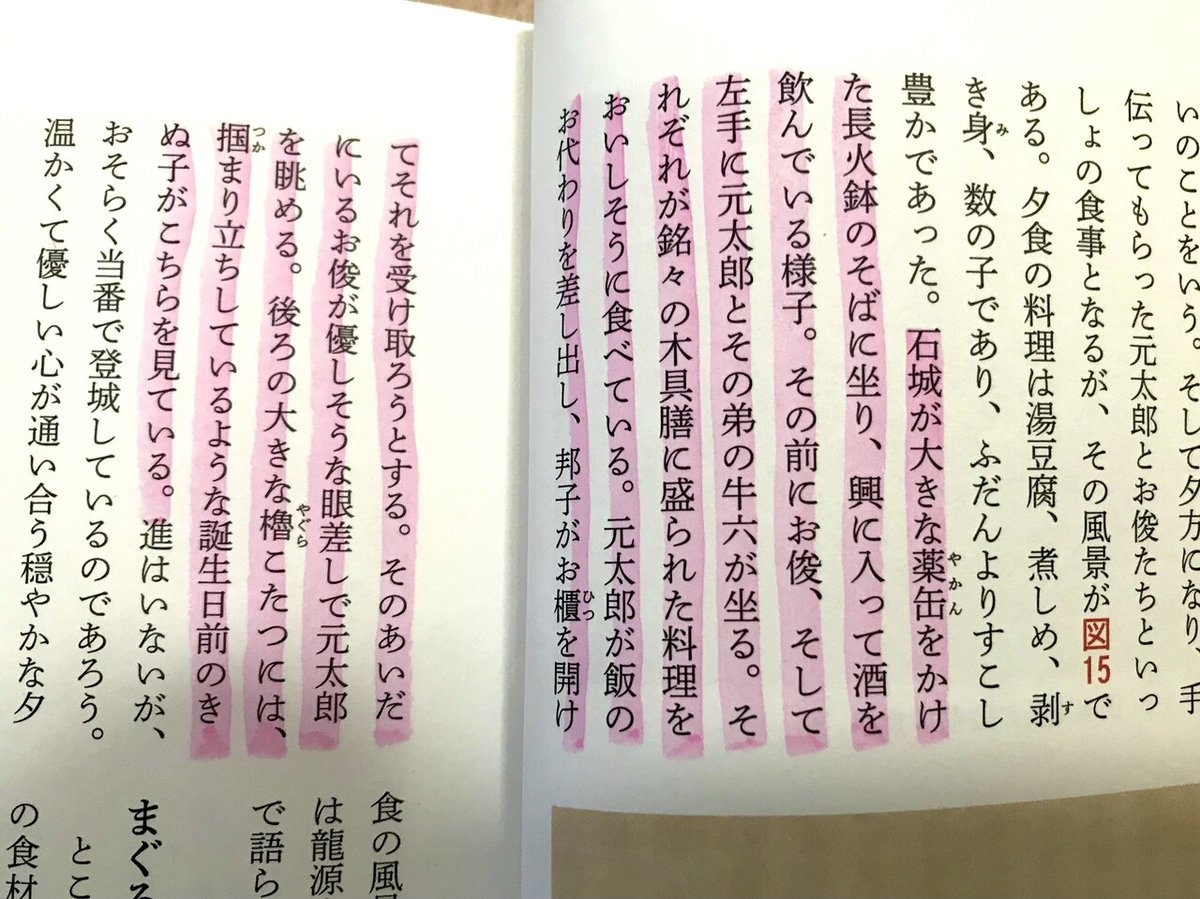 いのことをいう。そして夕方になり、手
伝ってもらった元太郎とお俊たちといっ
しょの食事となるが、その風景が図15で
ある。夕食の料理は湯豆腐、煮しめ、剥
き身、数の子であり、ふだんよりすこし
豊かであった。石城が大きな薬缶をかけ
た長火鉢のそばに坐り、興に入って酒を
飲んでいる様子。その前にお俊、そして
左手に元太郎とその弟の牛六が坐る。そ
れぞれが銘々の木具膳に盛られた料理を
おいしそうに食べている。元太郎が飯の
お代わりを差し出し、邦子がお櫃を開け
てそれを受け取ろうとする。そのあいだ
にいるお俊が優しそうな眼差しで元太郎
を眺める。後ろの大きな櫓こたつには、
掴まり立ちしているような誕生日前のき
ぬ子がこちらを見ている。進はいないが、
おそらく当番で登城しているのであろう。
温かくて優しい心が通い合う穏やかな夕
食の風
は龍源
で語ら
まぐろ
とこ
の食材